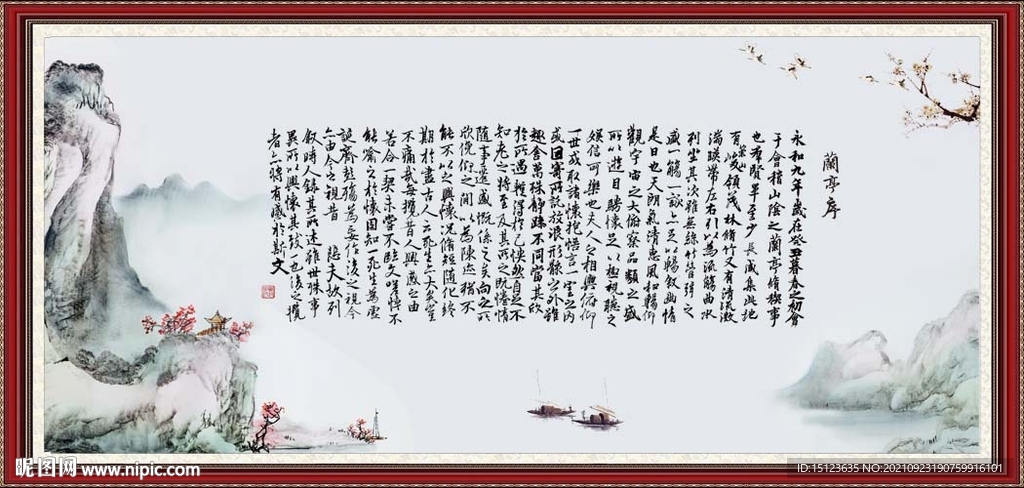 蘭亭序
永和九年歲在癸丑暮春之初會
于會稽山陰之蘭亭脩稧事
也羣賢畢至少長咸集此地
有崇山峻領茂林脩竹又有清流激
湍暎帶左右引以為流觴曲水
列坐其次雖無絲竹管弦之
盛一觴一詠亦足以暢敘幽情
是日也天朗氣清惠風和暢仰
觀宇宙之大俯察品類之盛
所以遊目騁懷足以極視聽之
娛信可樂也夫人之相與俯仰
一世或取諸懷抱悟言一室之內
或因寄所託放浪形骸之外雖
趣舍萬殊靜躁不同當其欣
於所遇蹔得於己快然自足不
知老之將至及其所之既惓情
隨事遷感慨係之矣向之所
欣俛仰之間以為陳迹猶不
能不以之興懷況脩短隨化終
期於盡古人云死生亦大矣豈
不痛哉每攬昔人興感之由
若合一契未嘗不臨文嗟悼不
能喻之於懷固知一死生為虛
誕齊彭殤為妄作後之視今
亦由今之視昔 悲夫故列
敘時人錄其所述雖世殊事
異所以興懷其致一也後之攬
者亦將有感於斯文
昵图网 www.nipic.com
ID:15123635 NO:20210923190759916101